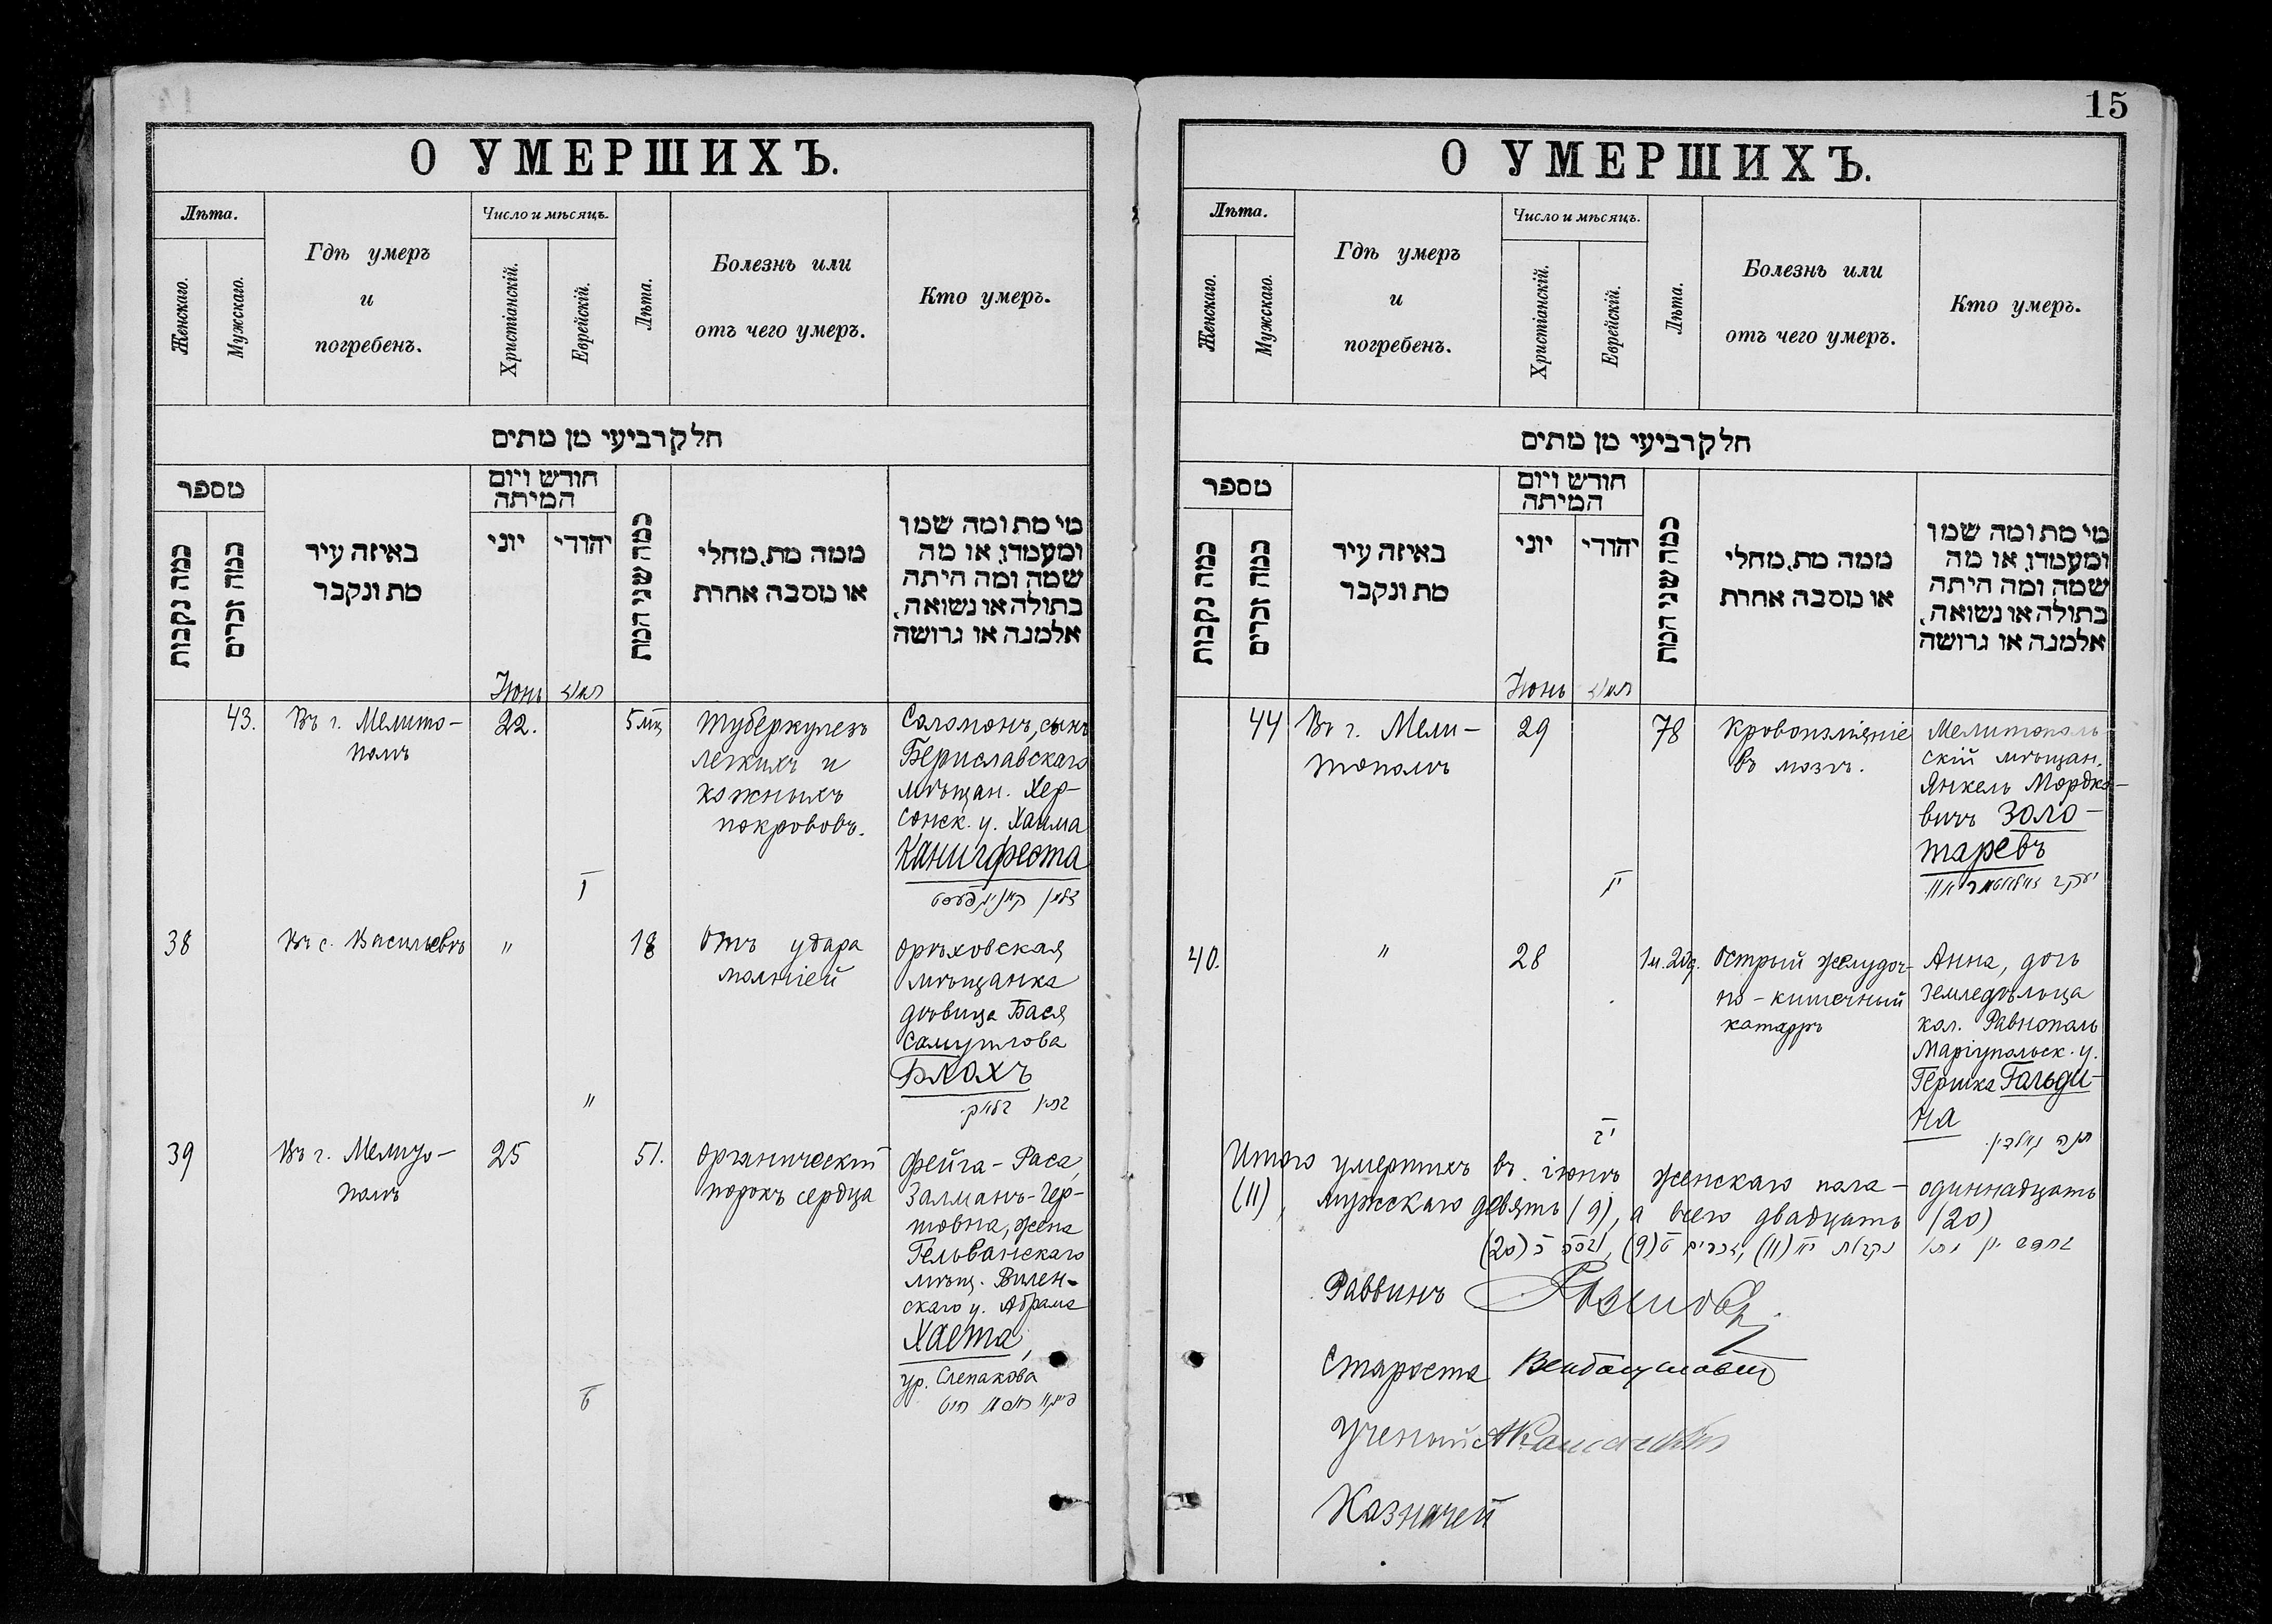 О УМЕРШИХЪ.
Лѣта.
Женскаго.
Мужскаго.
Гдѣ умеръ
и
погребенъ.
Число и мѣсяцъ.
Христіанскій.
Еврейскій.
Лѣта.
Болезнь или
отъ чего умеръ.
Кто умеръ.
חלק רביעי מן מתים
מספר
כמה נקבות
כמה זכרים
באיזה עיר
מת ונקבר
חודש ויום
המיתה
יוני
יהודי
כמה שני המת
ממה מת, מחלי
או מסבה אחרת
מי מת ומה שמו
ומעמדו, או מה
שמה ומה היתה
בתולה או נשואה,
אלמנה או גרושה
Іюнь
43.
Въ г. Мелито-
полѣ
22.
5 мѣц
Туберкулезъ
легкихъ и
кожныхъ
покрововъ.
Саломонъ, сынъ
Бериславскаго
мѣщан. Хер-
сонск. у. Хаима
Канигфеста
38
Въ с. Васильевкѣ
"
"
18
Отъ удара
молніей
Орѣховская
мѣщанка
дѣвица Бася
Самуилова
Блохъ
39
Въ г. Мелито-
полѣ
25
ט
51.
Органическій
порокъ сердца
Фейга-Раса
Залманъ-Гер-
товна, жена
Гельванскаго
мѣщ. Вилен-
скаго у. Абрама
Хаета,
ур. Слепакова
15
О УМЕРШИХЪ.
Лѣта.
Женскаго.
Мужскаго.
Гдѣ умеръ
и
погребенъ.
Число и мѣсяцъ.
Христіанскій.
Еврейскій.
Лѣта.
Болезнь или
отъ чего умеръ.
Кто умеръ.
חלק רביעי מן מתים
מספר
כמה נקבות
כמה זכרים
באיזה עיר
מת ונקבר
חודש ויום
המיתה
יוני
יהודי
כמה שני המת
ממה מת, מחלי
או מסבה אחרת
מי מת ומה שמו
ומעמדו, או מה
שמה ומה היתה
בתולה או נשואה,
אלמנה או גרושה
Іюнь
44
Въ г. Мели-
тополѣ
29
78
Кровоизліяніе
въ мозгъ.
Мелитополь-
скій мѣщан.
Янкель Мордко-
вичъ Золо-
таревъ
40.
"
28
Острый желудоч-
но-кишечный
катарръ
Анна, дочь
земледѣльца
кол. Равнополь
Маріупольск. у.
Гершка Гольди-
на
Итого умершихъ въ іюнѣ женскаго пола - одиннадцать
(11), мужскаго девять (9), а всего двадцать (20)
Раввинъ
Староста
Ученый
Казначей